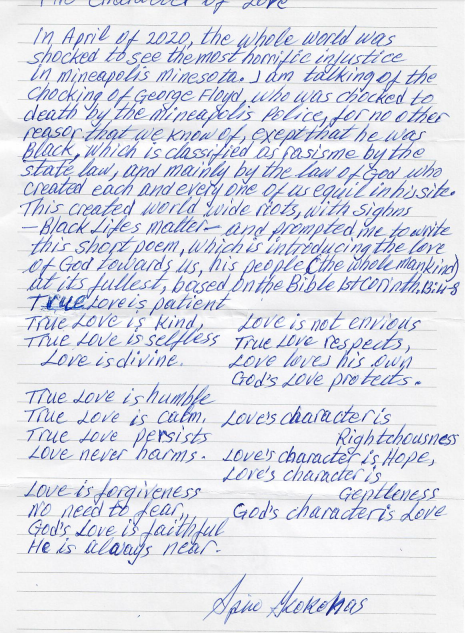 The Character of Love
In April of 2020, the whole world was
shocked to see the most horrific injustice
in mineapolis minesota. I am talking of the
chocking of George Floyd, who was chocked to
death by the mineapolis Police, for no other
reason that we know of, exept that he was
Black, which is classified as rasisme by the
state law, and mainly by the law of God who
created each and every one of us equil in his site.
This created world wide riots, with sighns
- Black Lifes matter - and prompted me to write
this short poem, which is introducing the love
of God towards us, his people (the whole mankind)
at its fullest, based on the Bible 1st Corinth. 13:4-8
True Love is patient
True Love is kind, Love is not envious
True Love is selfless True Love respects,
Love is divine. Love loves his own
God's Love protects.
True Love is humble
True Love is calm. Love's character is
True Love persists Rightchousness
Love never harms. Love's character is Hope,
Love's character is
Love is forgiveness Gentleness
No need to fear, God's character is Love
God's Love is faithful
He is always near.
Spiro